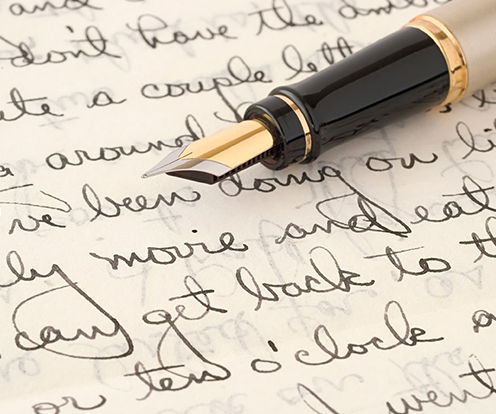 and don't have the
a couple
around
've been doing on
movie and eat
can get back to
or ten o'clock
went